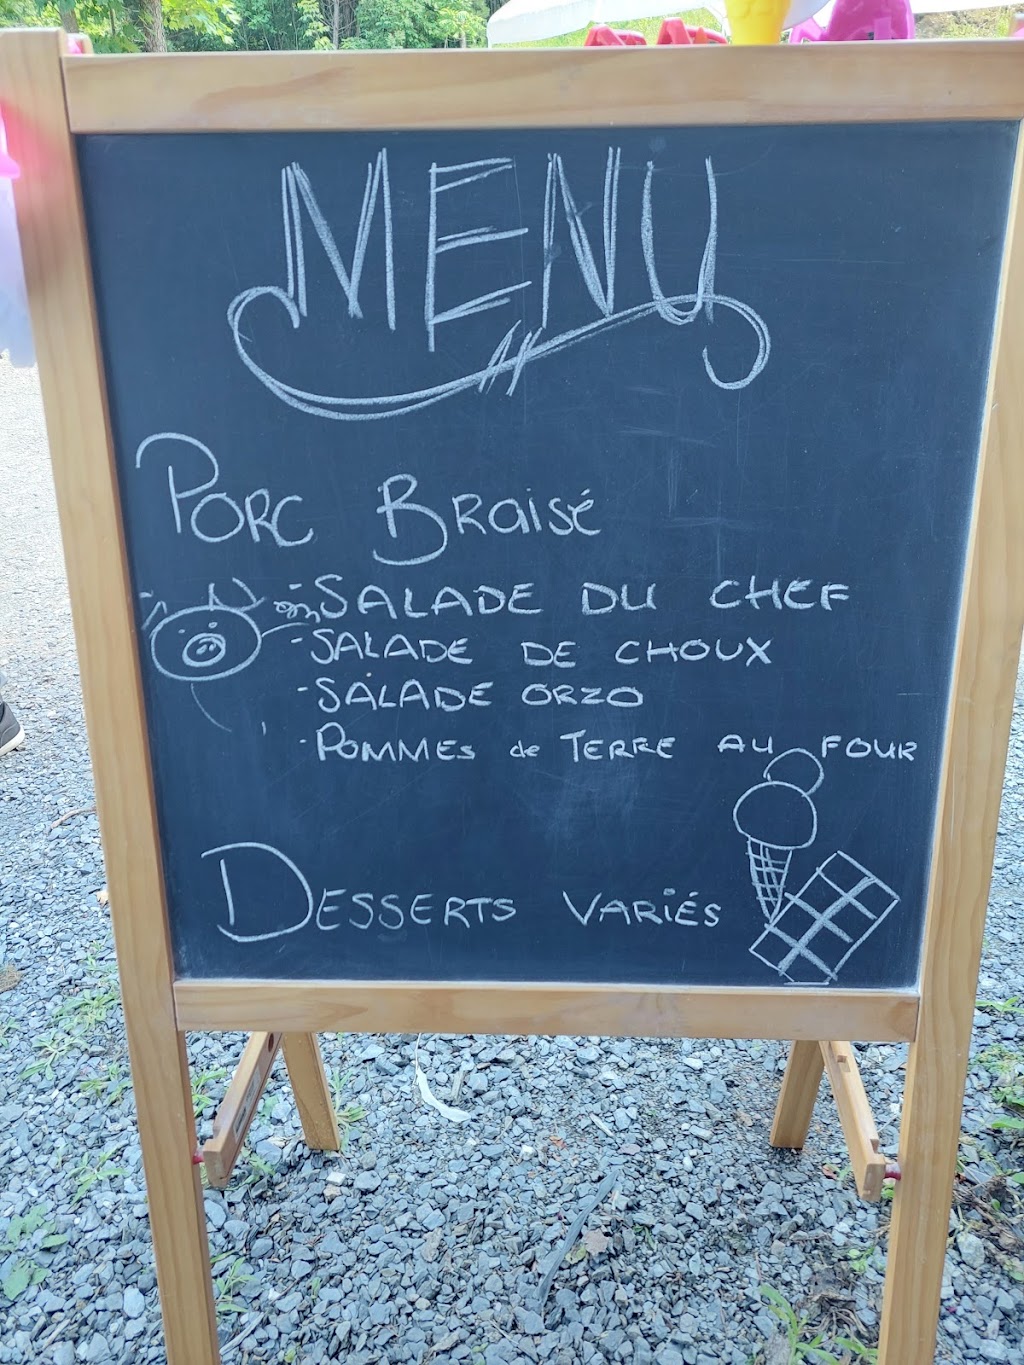 MENU
PORC BRaisé
-SALADE DU CHEF
-SALADE DE CHOUX
-SALADE ORZO
-POMMEs de TERRE AU FOUR
DESSERTS VARIÉS